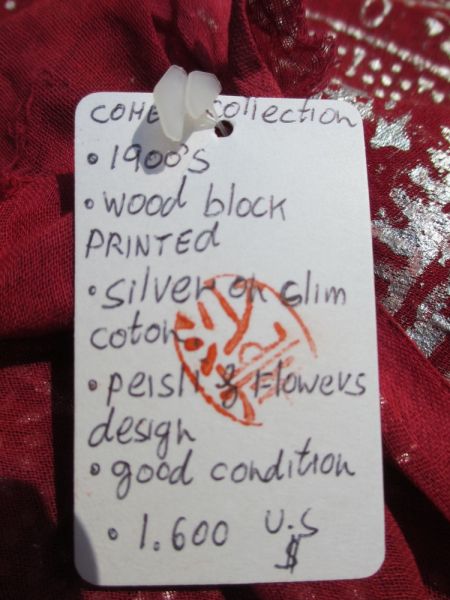 collection
• 1900's
• wood block
PRINTED
• silver on slim
coton
& Flowers
design
• good condition
• 1.600 U.S
$